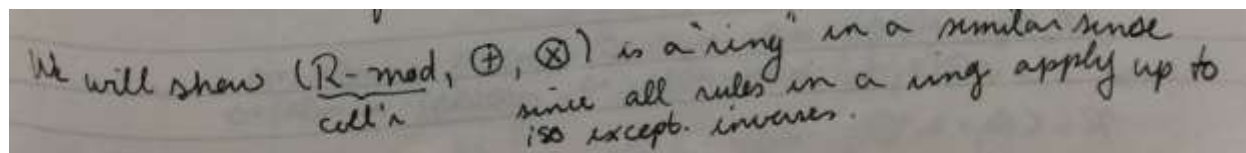 We will show (R-mod, ⊕, ⊗) is a "ring" in a similar sense
coll'n since all rules in a ring apply up to
iso except. inverses.